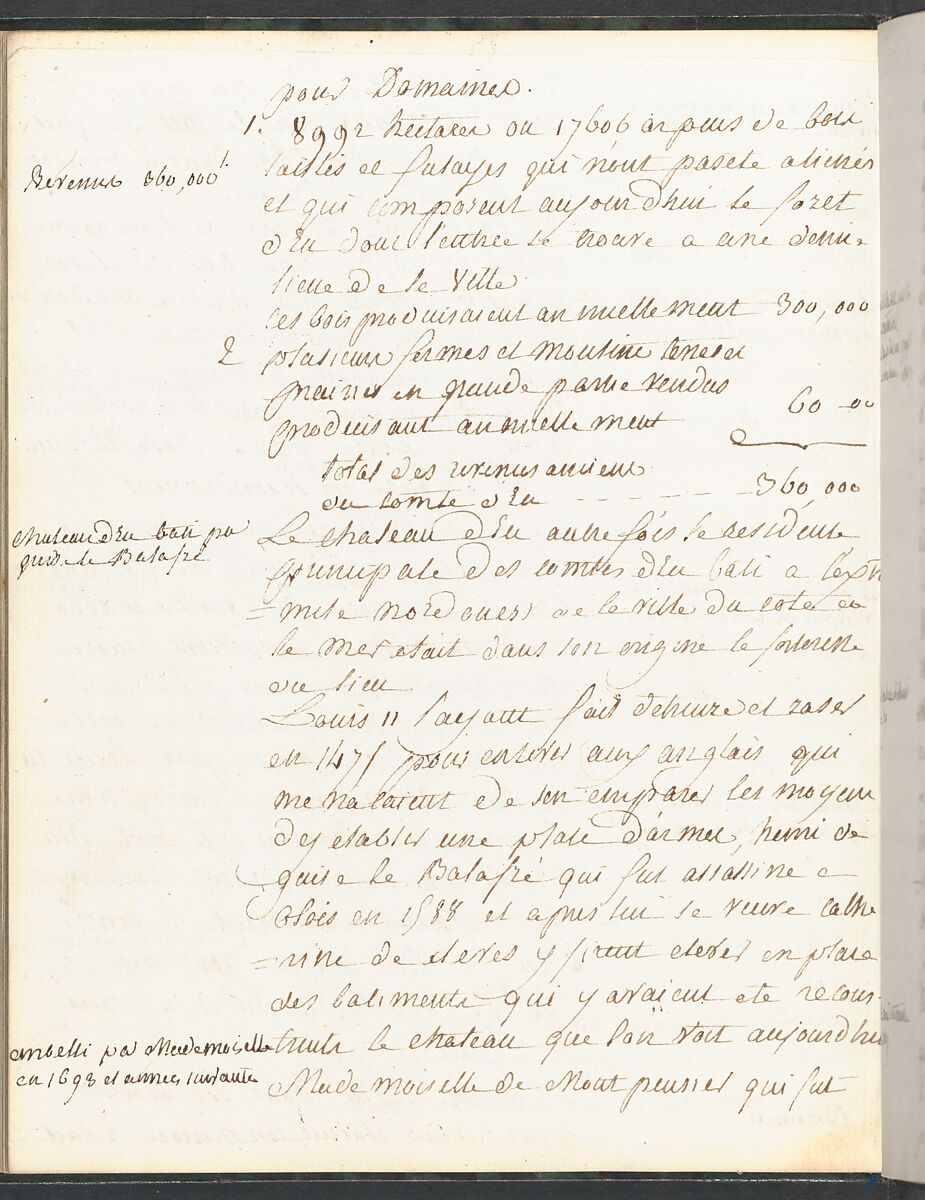 pour Domaines.
1. 8992 hectares ou 17606 arpens de bois
Revenus 360,000 l.
taillis et futayes qui n'ont pas ete alienés
et qui composent aujourd'hui le foret
d'Eu dont l'entree se trouve a une demie
lieue de le Ville
les bois produisaient annuellement 300,000
2 plusieurs fermes et moulins terres et
prairies en grande partie vendus
produisant annuellement 60 00
total des revenus anciens
du comte d'Eu - - - - - 360 000
chateau d'Eu bati par
guise le Balafré
Le chateau d'Eu autrefois le residence
principale des comtes d'Eu bati a l'extre
= mité nord ouest de le ville du coté de
le mer etait dans son origine le forteresse
du lieu
Louis 11 l'ayant fait detruire et raser
en 1475 pour enlever aux anglais qui
menacaient de s'en emparer les moyens
d'y etablir une place d'armes, henri de
guise le Balafré qui fut assassiné a
Blois en 1588 et apres lui se veuve cathe
= rine de cleves y firent elever en place
des batiments qui y avaient ete recons-
truits le chateau que l'on voit aujourd'hui
embelli par Mademoiselle
en 1698 et années suivantes
Mademoiselle de Montpensier qui fut